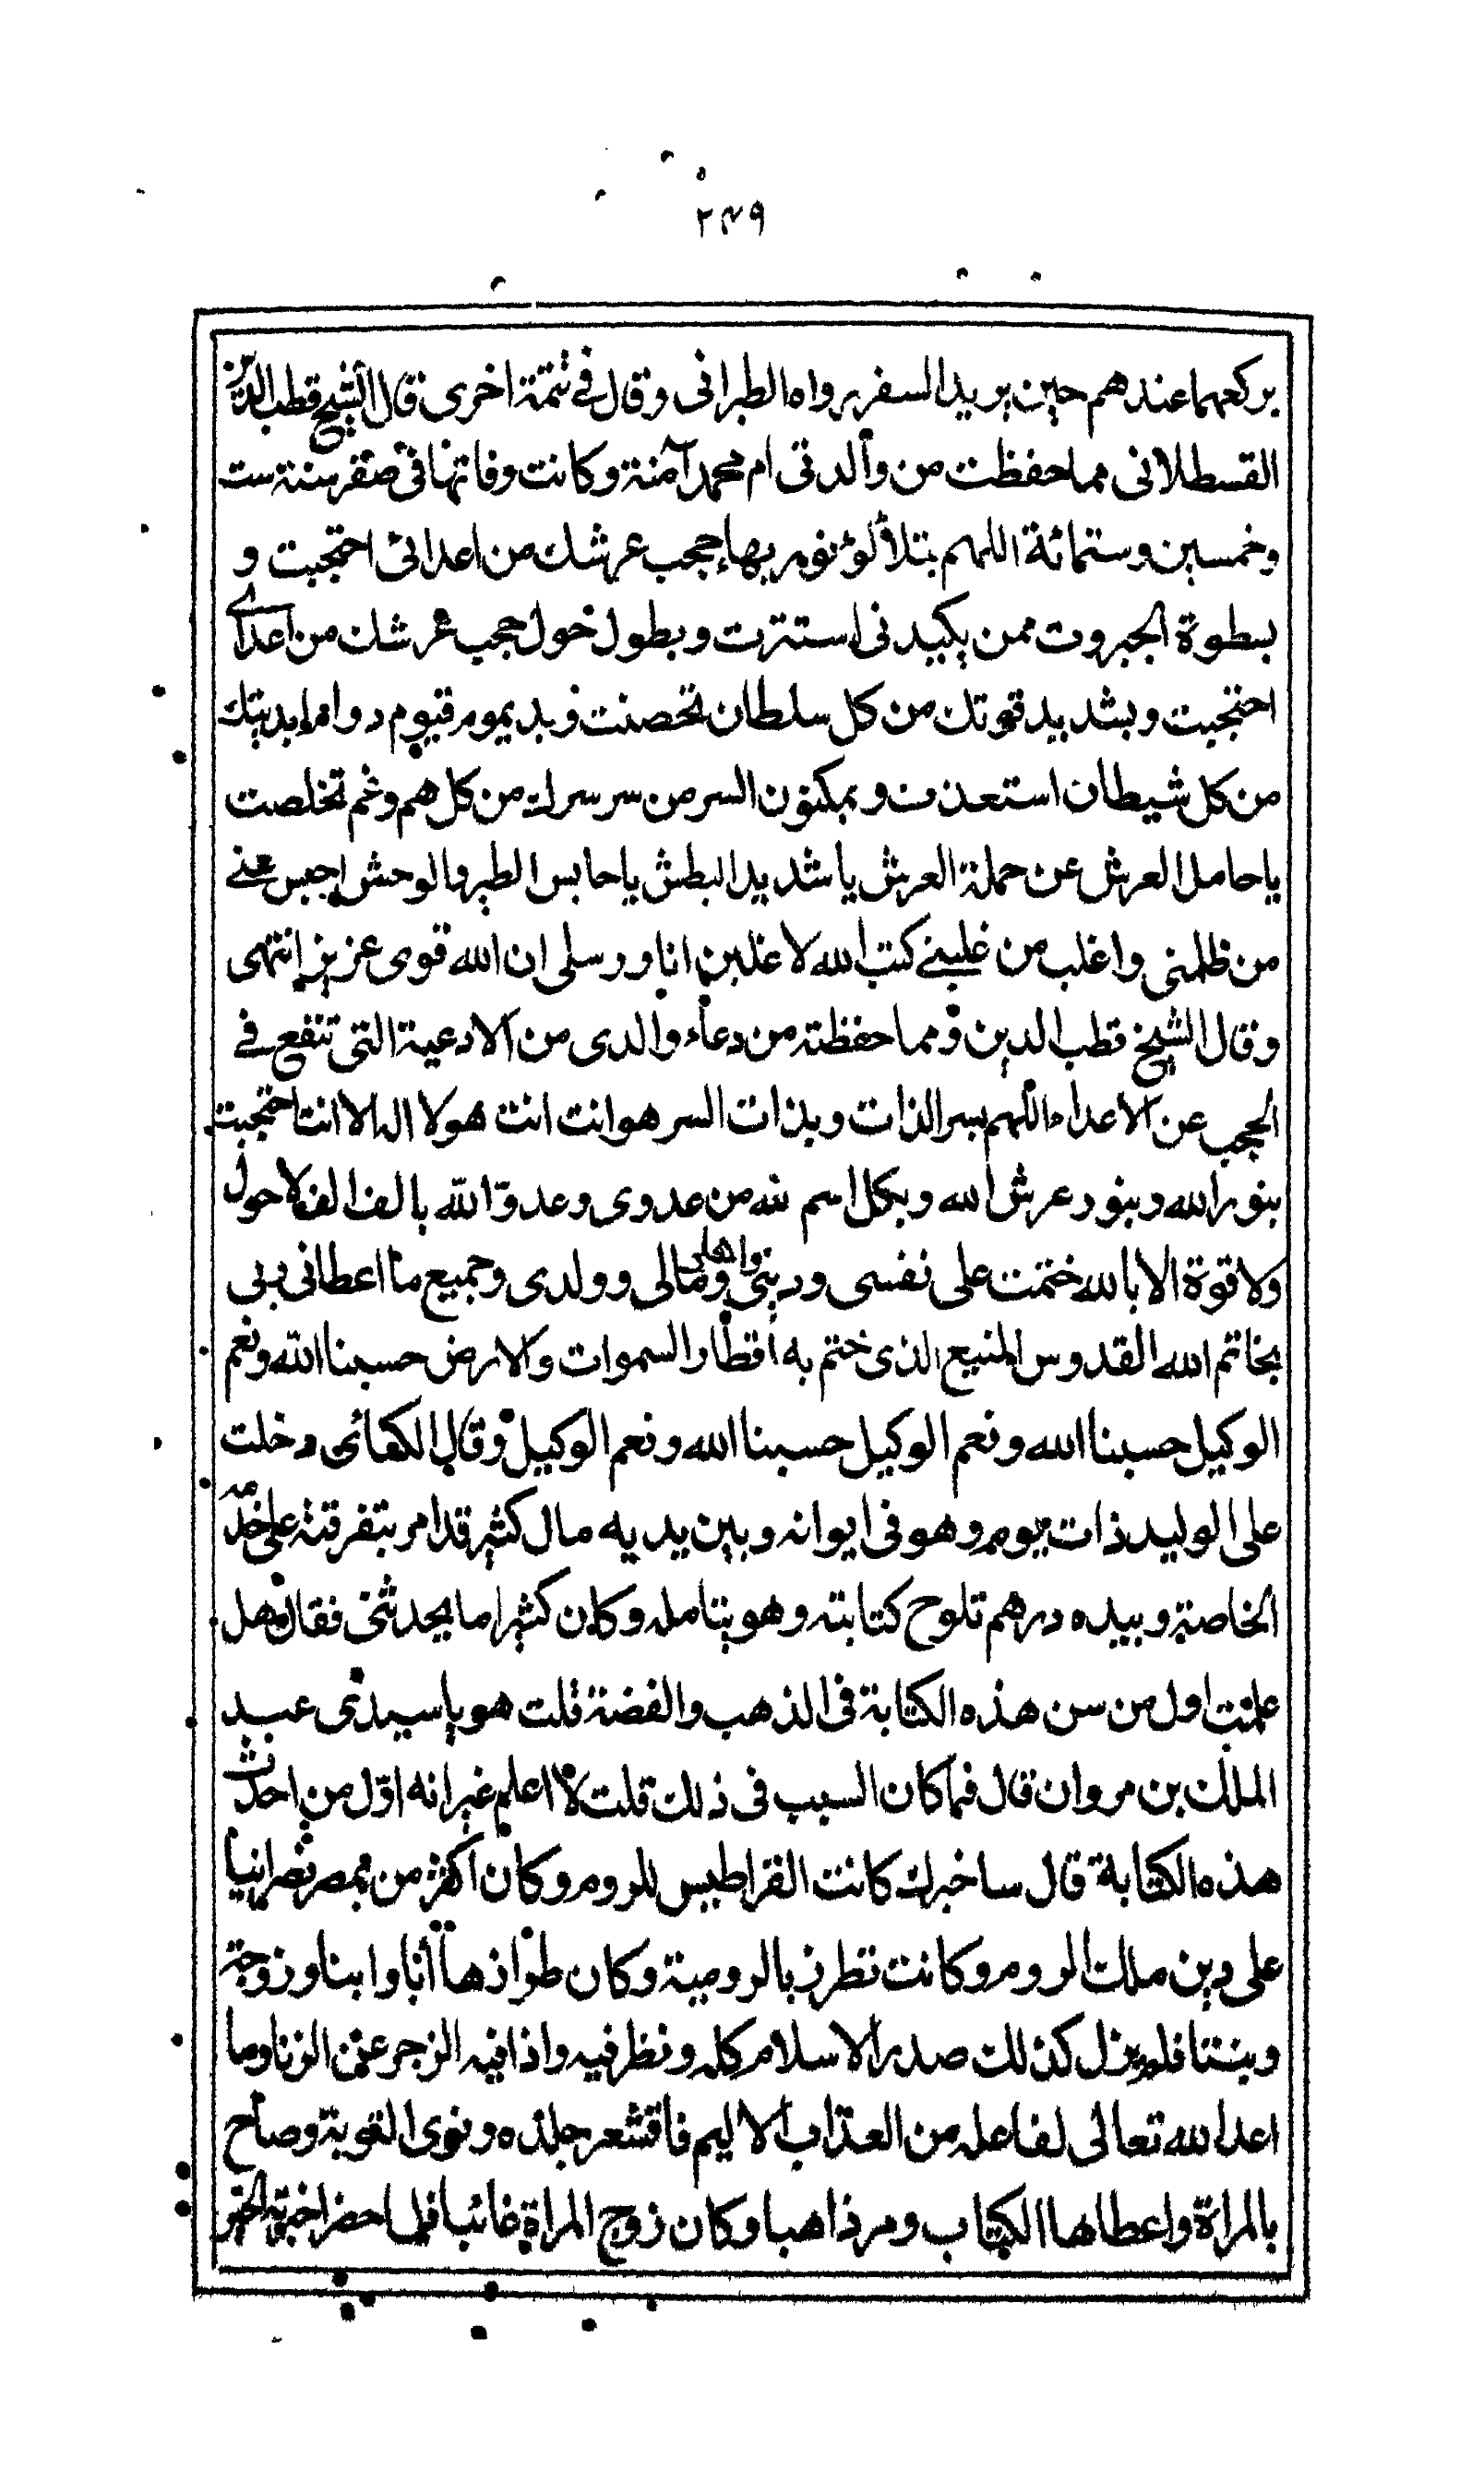 ٢٤٩
يركعهما عندهم حين يريد السفر رواه الطبرانى وقال فى تتمة اخرى قال الشيخ قطب الدين
القسطلانى مما حفظت من والدتى ام محمد آمنة وكانت وفاتها فى صفر سنة ست
وخمسين وستمائة اللهم بتلألؤ نور بهاء حجب عرشك من اعدائى احتجبت و
بسطوة الجبروت ممن يكيدنى استترت وبطول حول حجب عرشك من اعدائى
احتجبت وبشديد قوتك من كل سلطان تحصنت وبديموم قيوم دوام ابديتك
من كل شيطان استعذت وبمكنون السر من سر سرك من كل هم وغم تخلصت
يا حامل العرش عن حملة العرش يا شديد البطش يا حابس الطير والوحش احبس عنى
من ظلمنى واغلب من غلبنى كتب الله لاغلبن انا ورسلى ان الله قوى عزيز انتهى
وقال الشيخ قطب الدين ومما حفظته من دعاء والدى من الادعية التى تنفع فى
الحجب عن الاعداء اللهم بسر الذات وبذات السر هو انت انت هو لا اله الا انت احتجبت
بنور الله وبنور عرش الله وبكل اسم لله من عدوى وعدو الله بالف الف لا حول
ولا قوة الا بالله ختمت على نفسى ودينى واهلى ومالى وولدى وجميع ما اعطانى ربى
بخاتم الله القدوس المنيع الذى ختم به اقطار السموات والارض حسبنا الله ونعم
الوكيل حسبنا الله ونعم الوكيل حسبنا الله ونعم الوكيل وقال الكسائى دخلت
على الوليد ذات يوم وهو فى ايوانه وبين يديه مال كثير قد امر بتفرقته على خدمه
الخاصة وبيده درهم تلوح كتابته وهو يتامله وكان كثيرا ما يحدثنى فقال هل
علمت اول من سن هذه الكتابة فى الذهب والفضة قلت هو يا سيدى عبد
الملك بن مروان قال فما كان السبب فى ذلك قلت لا اعلم غير انه اول من احدث
هذه الكتابة قال ساخبرك كانت القراطيس للروم وكان اكثر من بمصر نصرانيا
على دين ملك الروم وكانت تطرز بالرومية وكان طرازها أبا وابنا وزوجة
وبنتا فلم يزل كذلك صدر الاسلام كله ونظر فيه واذا فيه الزجر عن الزنا وما
اعد الله تعالى لفاعله من العذاب الاليم فاقشعر جلده ونوى التوبة وصاح
بالمراة واعطاها الكتاب ومر ذاهبا وكان زوج المراة غائبا فلما حضر اخبرته الخبر